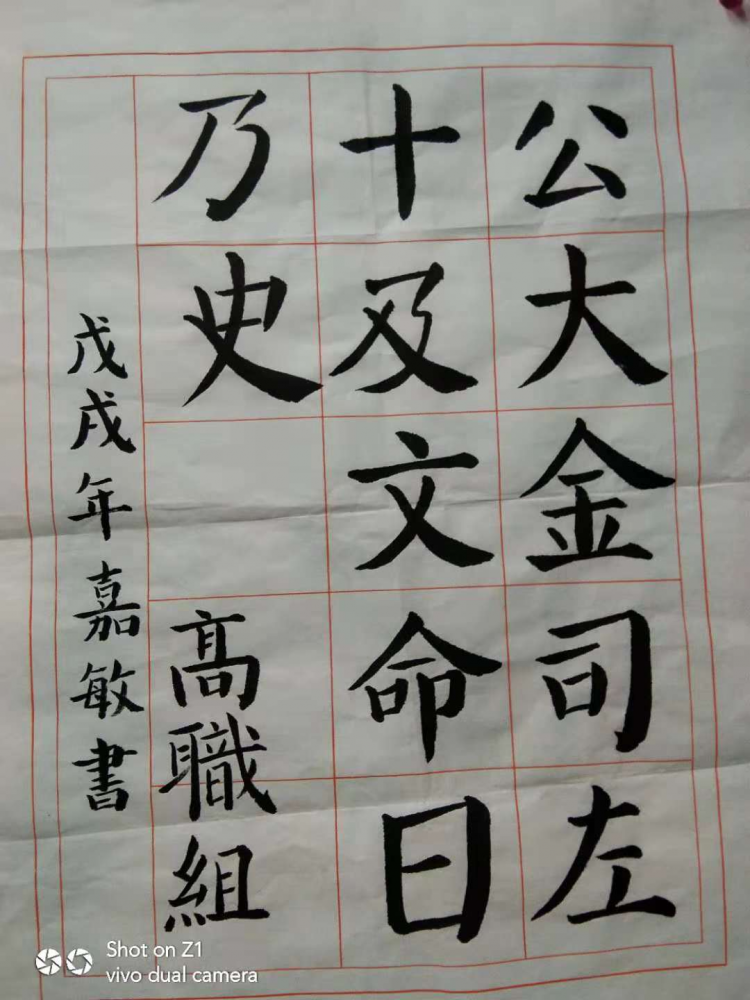 公大金司左
十及文命日
乃史
高職組
戊戌年嘉敏書
Shot on Z1
vivo dual camera